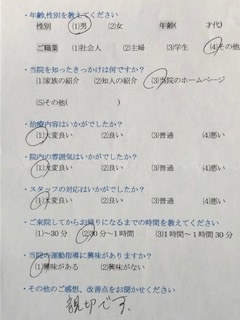 ・年齢,性別を教えてください
性別 (1)男 (2)女 年齢( 才代)
ご職業 (1)社会人 (2)主婦 (3)学生 (4)その他
・当院を知ったきっかけは何ですか?
(1)家族の紹介 (2)知人の紹介 (3)当院のホームページ
(5)その他( )
・治療内容はいかがでしたか?
(1)大変良い (2)良い (3)普通 (4)悪い
・院内の雰囲気はいかがでしたか?
(1)大変良い (2)良い (3)普通 (4)悪い
・スタッフの対応はいかがでしたか?
(1)大変良い (2)良い (3)普通 (4)悪い
・ご来院してからお帰りになるまでの時間を教えてください
(1)~30分 (2)30分~1時間 (3)1時間~1時間30分
・当院内運動指導に興味がありますか?
(1)興味がある (2)興味がない
・その他のご感想、改善点をお聞かせください
親切です.